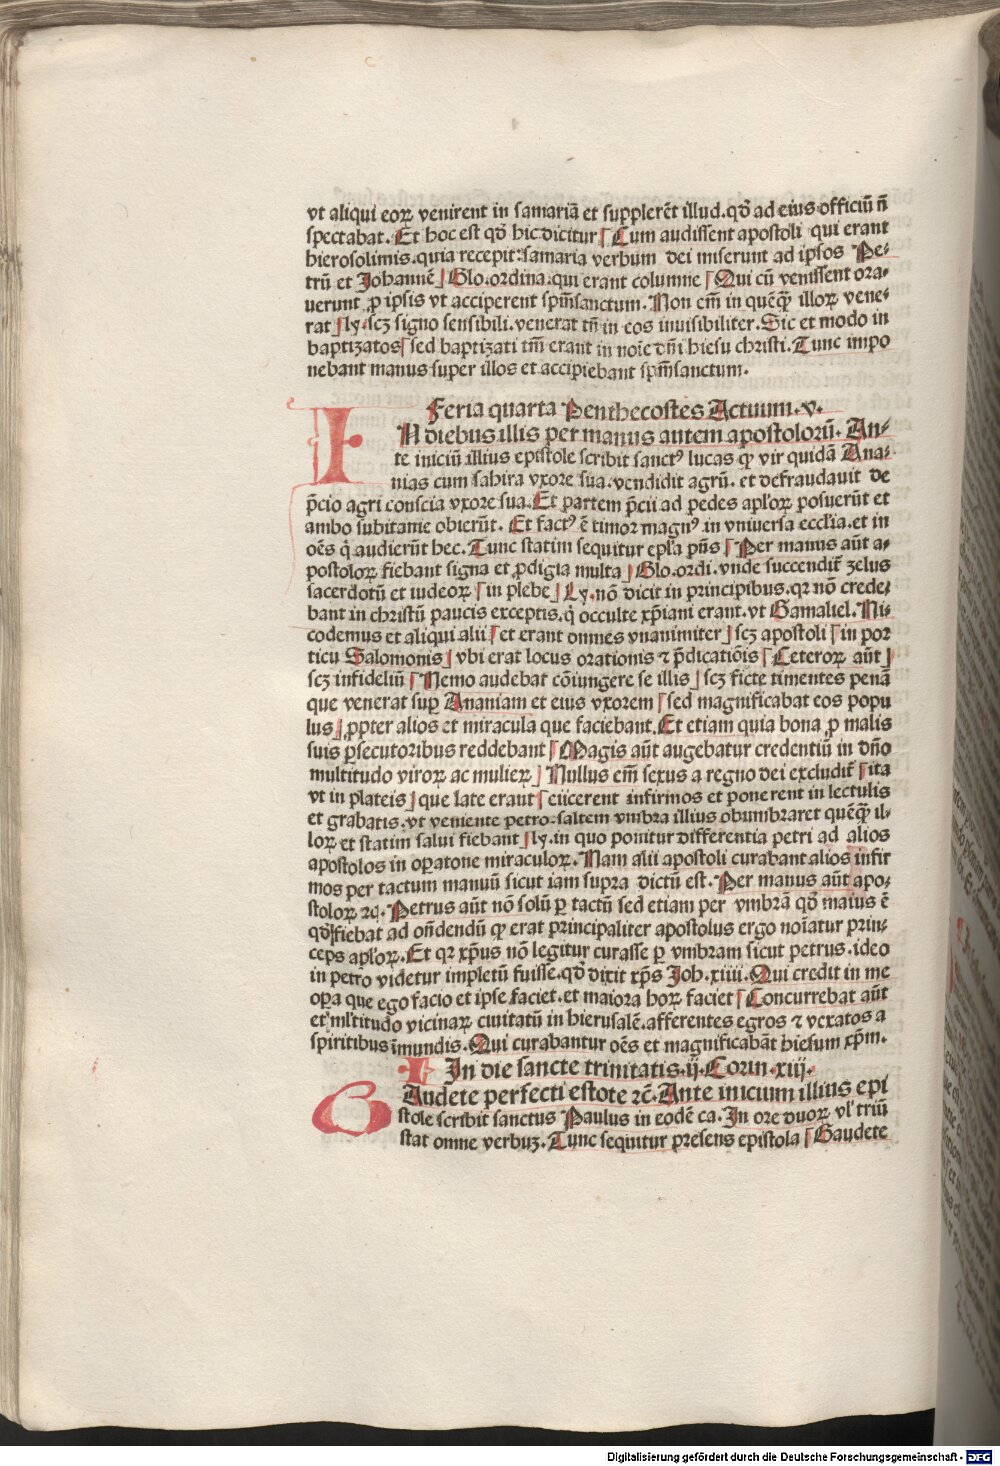 vt aliqui eoꝝ venirent in samariã et supplerẽt illud.qđ ad eius officiũ ñ
spectabat. Et hoc est qđ hic dicitur ⌈ Cum audissent apostoli qui erant
hierosolimis.quia recepit:samaria verbum dei miserunt ad ipsos Pe⸗
trũ et Johannẽ ⌋ Glo.ordina.qui erant columne ⌈ Qui cũ venissent ora⸗
uerunt ꝓ ipsis vt acciperent spm̃sanctum. Non em̃ in quẽqꝫ illoꝝ vene⸗
rat ⌋ ly.scꝫ signo sensibili.venerat tñ in eos inuisibiliter. Sic et modo in
baptizatos ⌈ sed baptizati tm̃ erant in noĩe dñi hiesu christi. Tunc impo
nebant manus super illos et accipiebant spm̃sanctum.
Feria quarta Penthecostes Actuum.v.
IN diebus illis per manus autem apostolorũ. An⸗
te iniciũ illius epistole scribit sanctꝰ lucas ꝙ vir quidã Ana⸗
nias cum saphira vxore sua.vendidit agrũ. et defraudauit de
p̃cio agri conscia vxore sua. Et partem p̃cii ad pedes apl'oꝝ posuerũt et
ambo subitanie obierũt. Et factꝰ ẽ timor magnꝰ in vniuersa eccl'ia.et in
oẽs q̇ audierũt hec. Tunc statim sequitur epl'a p̃ñs ⌈ Per manus aũt a⸗
postoloꝝ fiebant signa et ꝓdigia multa ⌋ Glo.ordi.vnde succendit᷑ zelus
sacerdotũ et iudeoꝝ ⌈ in plebe ⌋ Ly.nõ dicit in principibus.qꝛ nõ crede⸗
bant in christũ paucis exceptis.q̇ occulte xp̃iani erant.vt Gamaliel. Ni⸗
codemus et aliqui alii ⌈ et erant omnes vnanimiter ⌋ scꝫ apostoli ⌈ in por
ticu Salomonis ⌋ vbi erat locus orationis ⁊ p̃dicatiõis ⌈ Ceteroꝝ aũt ⌋
scꝫ infideliũ ⌈ Nemo audebat cõiungere se illis ⌋ scꝫ ficte timentes penã
que venerat suꝑ Ananiam et eius vxorem ⌈ sed magnificabat eos popu
lus ⌋ ꝓpter alios et miracula que faciebant. Et etiam quia bona ꝓ malis
suis ꝑsecutoribus reddebant ⌈ Magis aũt augebatur credentiũ in dño
multitudo viroꝝ ac mulieꝝ ⌋ Nullus em̃ sexus a regno dei excludit᷑ ⌈ ita
vt in plateis ⌋ que late erant ⌈ eiicerent infirmos et ponerent in lectulis
et grabatis.vt veniente petro.saltem vmbra illius obumbraret quẽqꝫ il⸗
loꝝ et statim salui fiebant ⌋ ly.in quo ponitur differentia petri ad alios
apostolos in oꝑatone miraculoꝝ. Nam alii apostoli curabant alios infir
mos per tactum manuũ sicut iam supra dictũ est. Per manus aũt apo⸗
stoloꝝ ꝛc̨. Petrus aũt nõ solũ ꝑ tactũ sed etiam per vmbrã qđ maius ẽ
qđ fiebat ad oñdendũ ꝙ erat principaliter apostolus ergo noĩatur prin⸗
ceps apl'oꝝ. Et qꝛ xp̃us nõ legitur curasse ꝑ vmbram sicut petrus.ideo
in petro videtur impletũ fuisse.qđ dixit xp̃s Joh.xiiii. Qui credit in me
oꝑa que ego facio et ipse faciet.et maiora hoꝝ faciet ⌈ Concurrebat aũt
et ml'titudo vicinaꝝ ciuitatũ in hierusalẽ.afferentes egros ⁊ vexatos a
spiritibus ĩmundis. Qui curabantur oẽs et magnificabãt hiesum xp̃m.
In die sancte trinitatis.ij.Corin.xiij.
GAudete perfecti estote ꝛc̃. Ante inicium illius epi
stole scribit sanctus Paulus in eodẽ ca. In ore duoꝝ vl' triũ
stat omne verbuꝫ. Tunc sequitur presens epistola ⌈ Gaudete
Digitalisierung gefördert durch die Deutsche Forschungsgemeinschaft - DFG